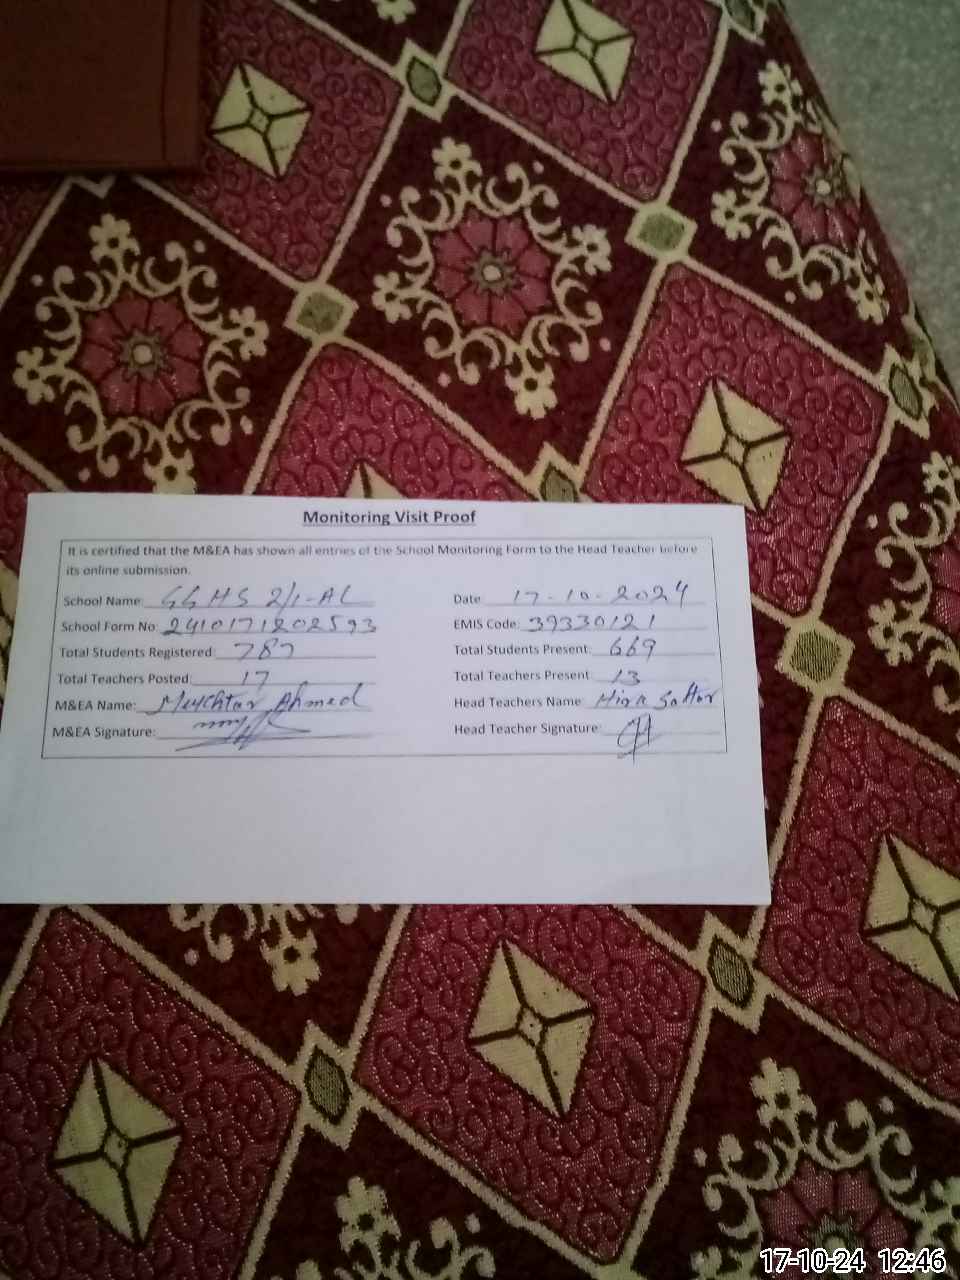 Monitoring Visit Proof
It is certified that the M&EA has shown all entries of the School Monitoring Form to the Head Teacher before
its online submission.
School Name: GGHS 2/1-AL Date 17-10-2024
School Form No: 2410171202593 EMIS Code: 39330121
Total Students Registered: 787 Total Students Present: 669
Total Teachers Posted: 17 Total Teachers Present 13
M&EA Name: Mukhtar Ahmed Head Teachers Name: Hira Sattar
M&EA Signature: Head Teacher Signature:
17-10-24 12:46